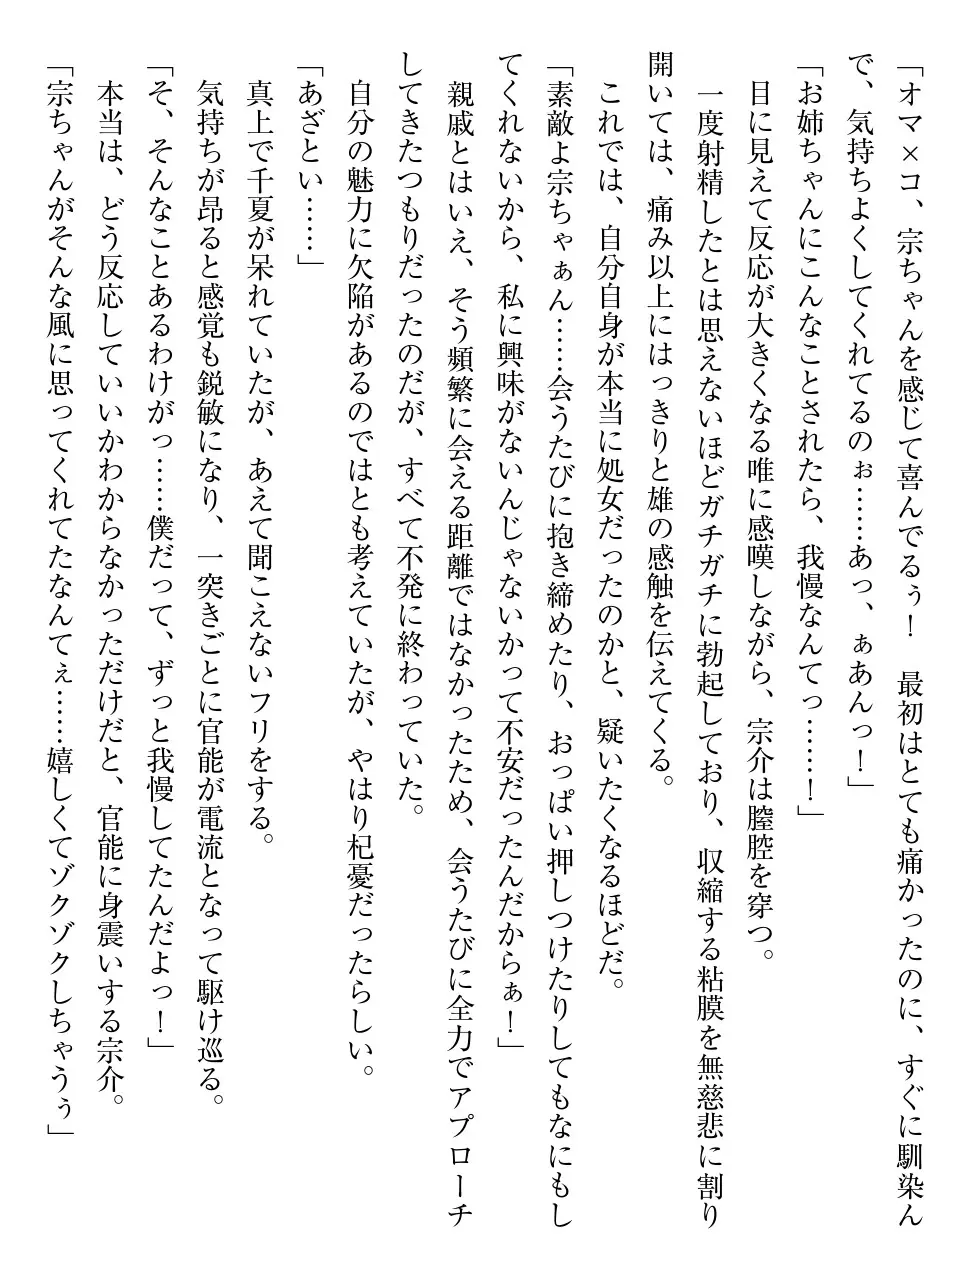 「オマ×コ、宗ちゃんを感じて喜んでるぅ！　最初はとても痛かったのに、すぐに馴染ん
で、気持ちよくしてくれてるのぉ……あっ、ぁあんっ！」
「お姉ちゃんにこんなことされたら、我慢なんてっ……！」
　目に見えて反応が大きくなる唯に感嘆しながら、宗介は膣腔を穿つ。
　一度射精したとは思えないほどガチガチに勃起しており、収縮する粘膜を無慈悲に割り
開いては、痛み以上にはっきりと雄の感触を伝えてくる。
　これでは、自分自身が本当に処女だったのかと、疑いたくなるほどだ。
「素敵よ宗ちゃぁん……会うたびに抱き締めたり、おっぱい押しつけたりしてもなにもし
てくれないから、私に興味がないんじゃないかって不安だったんだからぁ！」
　親戚とはいえ、そう頻繁に会える距離ではなかったため、会うたびに全力でアプローチ
してきたつもりだったのだが、すべて不発に終わっていた。
　自分の魅力に欠陥があるのではとも考えていたが、やはり杞憂だったらしい。
「あざとい……」
　真上で千夏が呆れていたが、あえて聞こえないフリをする。
　気持ちが昂ると感覚も鋭敏になり、一突きごとに官能が電流となって駆け巡る。
「そ、そんなことあるわけがっ……僕だって、ずっと我慢してたんだよっ！」
　本当は、どう反応していいかわからなかっただけだと、官能に身震いする宗介。
「宗ちゃんがそんな風に思ってくれてたなんてぇ……嬉しくてゾクゾクしちゃうぅ」